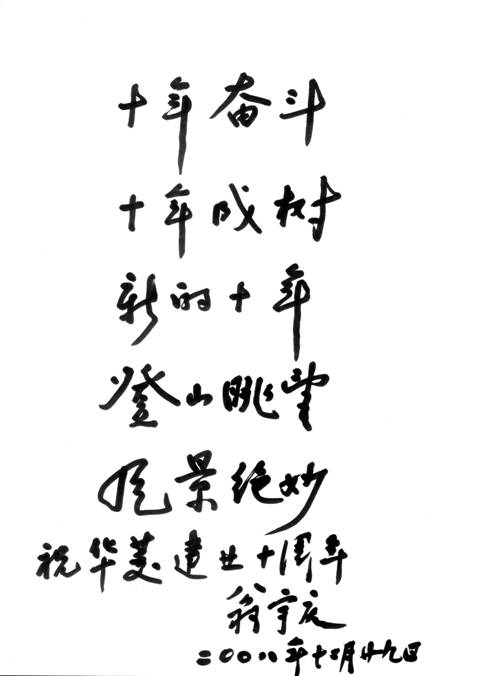 十年奋斗
十年成树
新的十年
登山眺望
风景绝妙
祝华美建业十周年
翁宇庆
二〇〇八年十二月廿九日